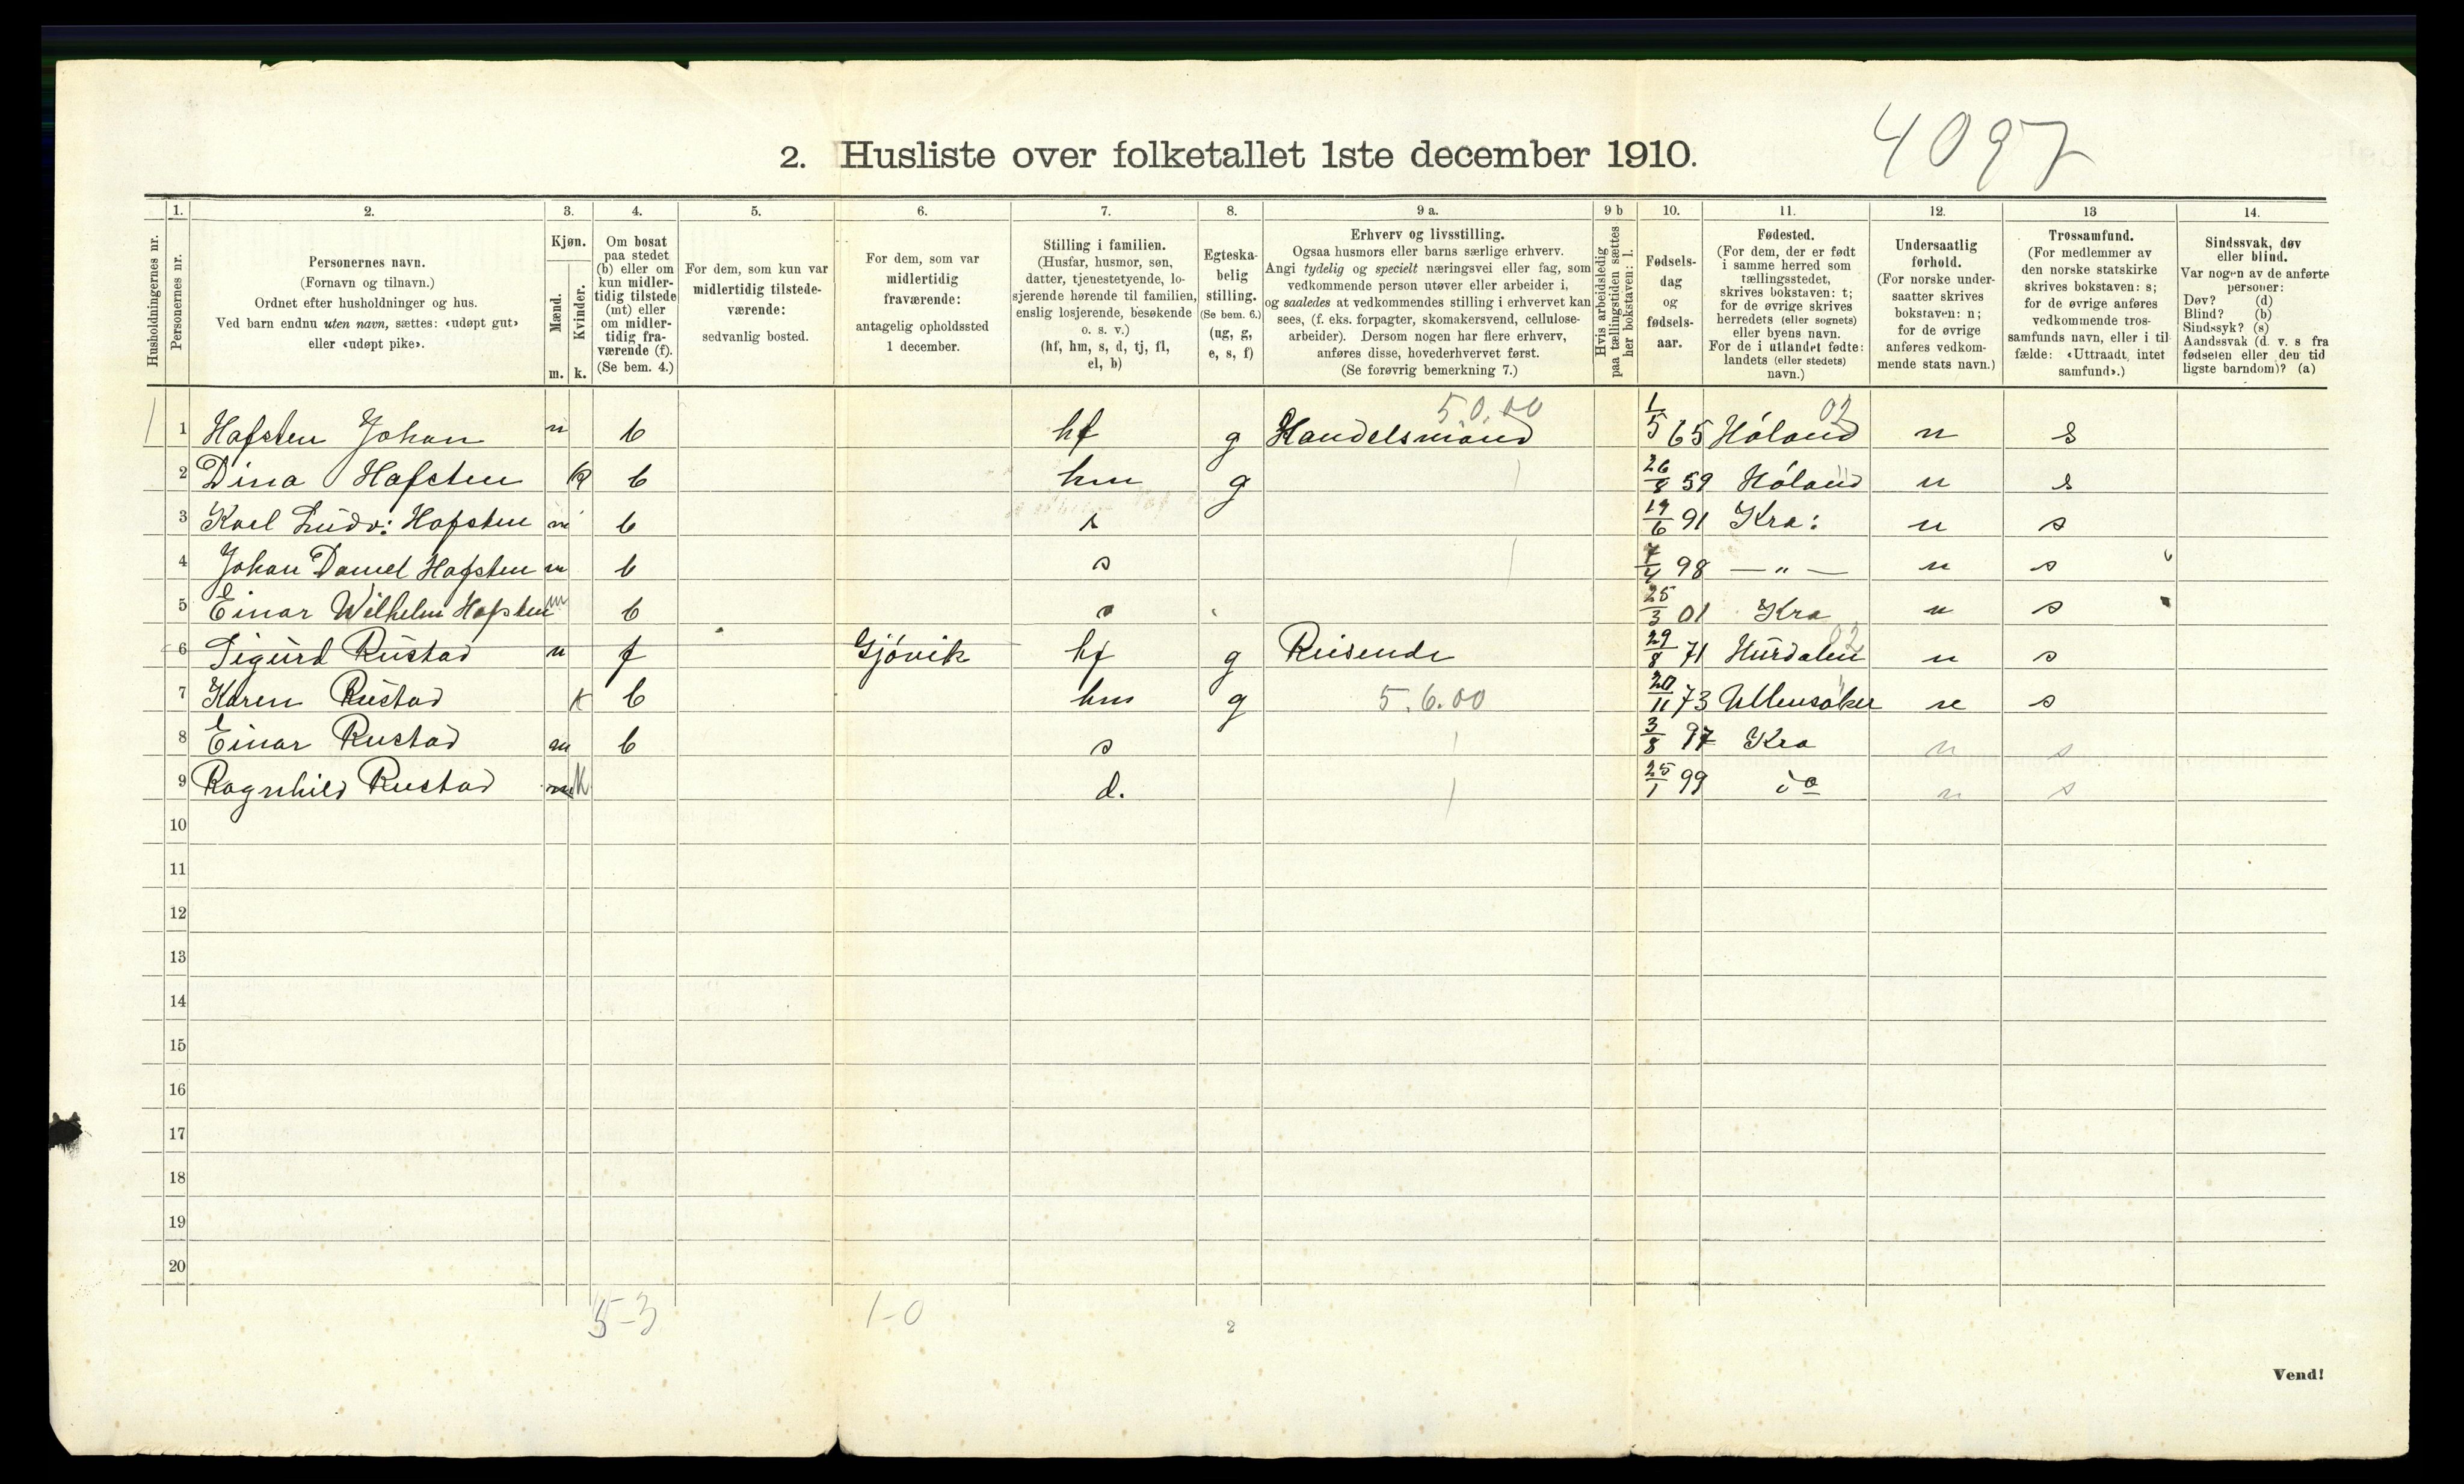 4097
2. Husliste over folketallet 1ste december 1910.
Husholdningernes nr.
1.
Personernes nr.
2.
Personernes navn.
(Fornavn og tilnavn.)
Ordnet efter husholdninger og hus.
Ved barn endnu uten navn, sættes: «udøpt gut»
eller «udøpt pike».
3.
Kjøn.
Mænd.
Kvinder.
m. k.
4.
Om bosat
paa stedet
(b) eller om
kun midler-
tidig tilstede
(mt) eller
om midler-
tidig fra-
værende (f).
(Se bem. 4.)
5.
For dem, som kun var
midlertidig tilstede-
værende:
sedvanlig bosted.
6.
For dem, som var
midlertidig
fraværende:
antagelig opholdssted
1 december.
7.
Stilling i familien.
(Husfar, husmor, søn,
datter, tjenestetyende, lo-
sjerende hørende til familien,
enslig losjerende, besøkende
o. s. v.)
(hf, hm, s, d, tj, fl,
el, b)
8.
Egteska-
belig
stilling.
(Se bem. 6.)
(ug, g,
e, s, f)
9 a.
Erhverv og livsstilling.
Ogsaa husmors eller barns særlige erhverv.
Angi tydelig og specielt næringsvei eller fag, som
vedkommende person utøver eller arbeider i,
og saaledes at vedkommendes stilling i erhvervet kan
sees, (f. eks. forpagter, skomakersvend, cellulose-
arbeider). Dersom nogen har flere erhverv,
anføres disse, hovederhvervet først.
(Se forøvrig bemerkning 7.)
9 b
Hvis arbeidsledig
paa tællingstiden sættes
her bokstaven: l.
10.
Fødsels-
dag
og
fødsels-
aar.
11.
Fødested.
(For dem, der er født
i samme herred som
tællingsstedet,
skrives bokstaven: t;
for de øvrige skrives
herredets (eller sognets)
eller byens navn.
For de i utlandet fødte:
landets (eller stedets)
navn.)
12.
Undersaatlig
forhold.
(For norske under-
saatter skrives
bokstaven: n;
for de øvrige
anføres vedkom-
mende stats navn.)
13
Trossamfund.
(For medlemmer av
den norske statskirke
skrives bokstaven: s;
for de øvrige anføres
vedkommende tros-
samfunds navn, eller i til
fælde: «Uttraadt, intet
samfund».)
14.
Sindssvak, døv
eller blind.
Var nogen av de anførte
personer:
Døv? (d)
Blind? (b)
Sindssyk? (s)
Aandssvak (d. v. s fra
fødselen eller den tid
ligste barndom)? (a)
50.00 02
1 1 Hafsten Johan m b hf g Handelsmand 1/5 65 Høland n s
2 Dina Hafsten k b hm g 26/8 59 Høland n s
3 Karl Ludv: Hafsten m b s 19/6 91 Kra: n s
4 Johan Daniel Hafsten m b s 7/4 98 — „ — n s
5 Einar Wilhelm Hafsten m b s 25/3 01 Kra n s
6 Sigurd Rustad m f Gjøvik hf g Reisende 29/8 71 Hurdalen 02 n s
7 Karen Rustad k b hm g 5.6.00 20/11 73 Ullensaker n s
8 Einar Rustad m b s 3/8 97 Kra n s
9 Ragnhild Rustad m k d. 25/1 99 do n s
10
11
12
13
14
15
16
17
18
19
20
5-3 1-0
2
Vend!